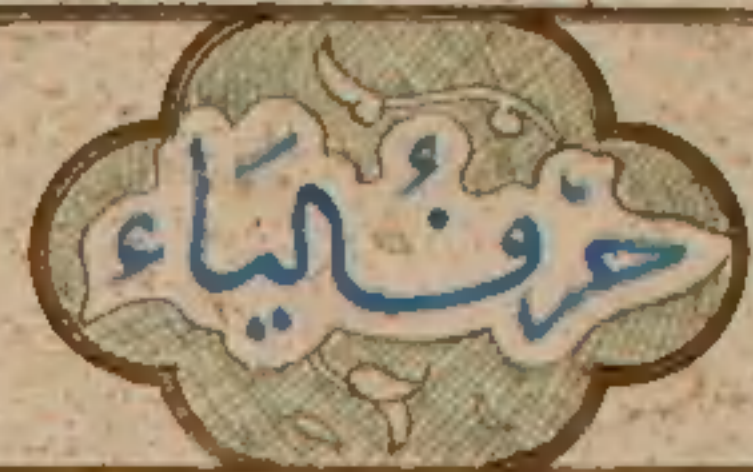 حرْفُ اليَاء